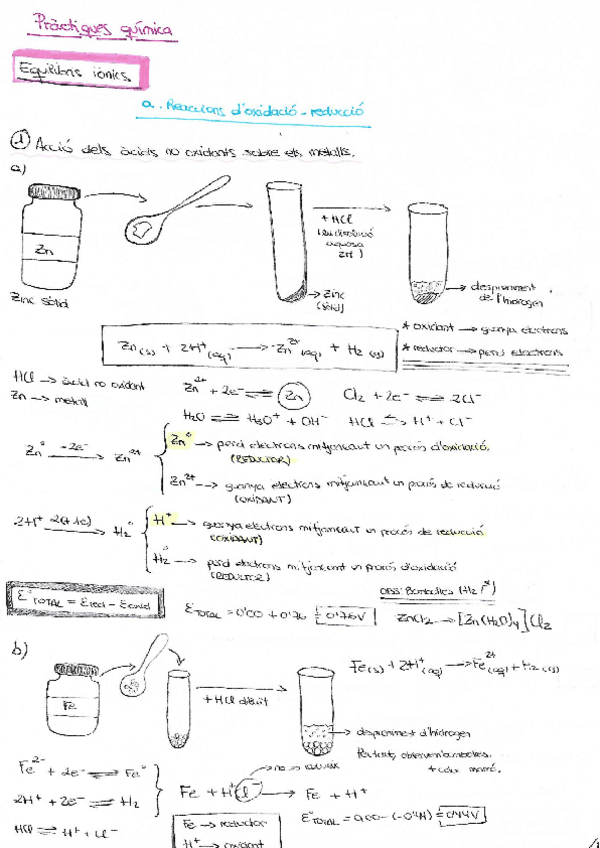 Pràctiques química
Equilibris iònics.
a. Reaccions d'oxidació-reducció
① Acció dels àcids no oxidants sobre els metalls.
a)
Zn
Zinc sòlid
+ HCl
aquosa
2M)
→ Zinc
(sòlid)
→ despreniment
de l'hidrogen
Zn(s) + 2H⁺(aq) → Zn²⁺(aq) + H₂(g)
* oxidant → guanya electrons
* reductor → perd electrons
HCl → àcid no oxidant
Zn → metall
Zn²⁺ + 2e⁻ ⇌ Zn
Cl₂ + 2e⁻ ⇌ 2Cl⁻
H₂O ⇌ H₃O⁺ + OH⁻
HCl ⇌ H⁺ + Cl⁻
Zn° –2e⁻→ Zn²⁺
Zn° → perd electrons mitjançant un procés d'oxidació.
(REDUCTOR)
Zn²⁺ → guanya electrons mitjançant un procés de reducció
(OXIDANT)
2H⁺ 2(+1e)→ H₂°
H⁺ → guanya electrons mitjançant un procés de reducció
(OXIDANT)
H₂° → perd electrons mitjançant un procés d'oxidació
(REDUCTOR)
E°TOTAL =
ETOTAL = 0'00 + 0'76 = 0'76V
OBS: Bombolles (H₂↑)
ZnCl₂ → [Zn(H₂O)₄]Cl₂
b)
Fe
+ HCl diluït
Fe(s) + 2H⁺(aq) → Fe²⁺(aq) + H₂(g)
→ despreniment d'hidrogen
+ color marró.
Fe²⁻ + 2e⁻ ⇌ Fe°
2H⁺ + 2e⁻ ⇌ H₂
HCl ⇌ H⁺ + Cl⁻
Fe + H⁺Cl⁻ → Fe + H⁺
Fe → reductor
H⁺ → oxidant
E°TOTAL = 0'00 - (-0'44) = 0'44V